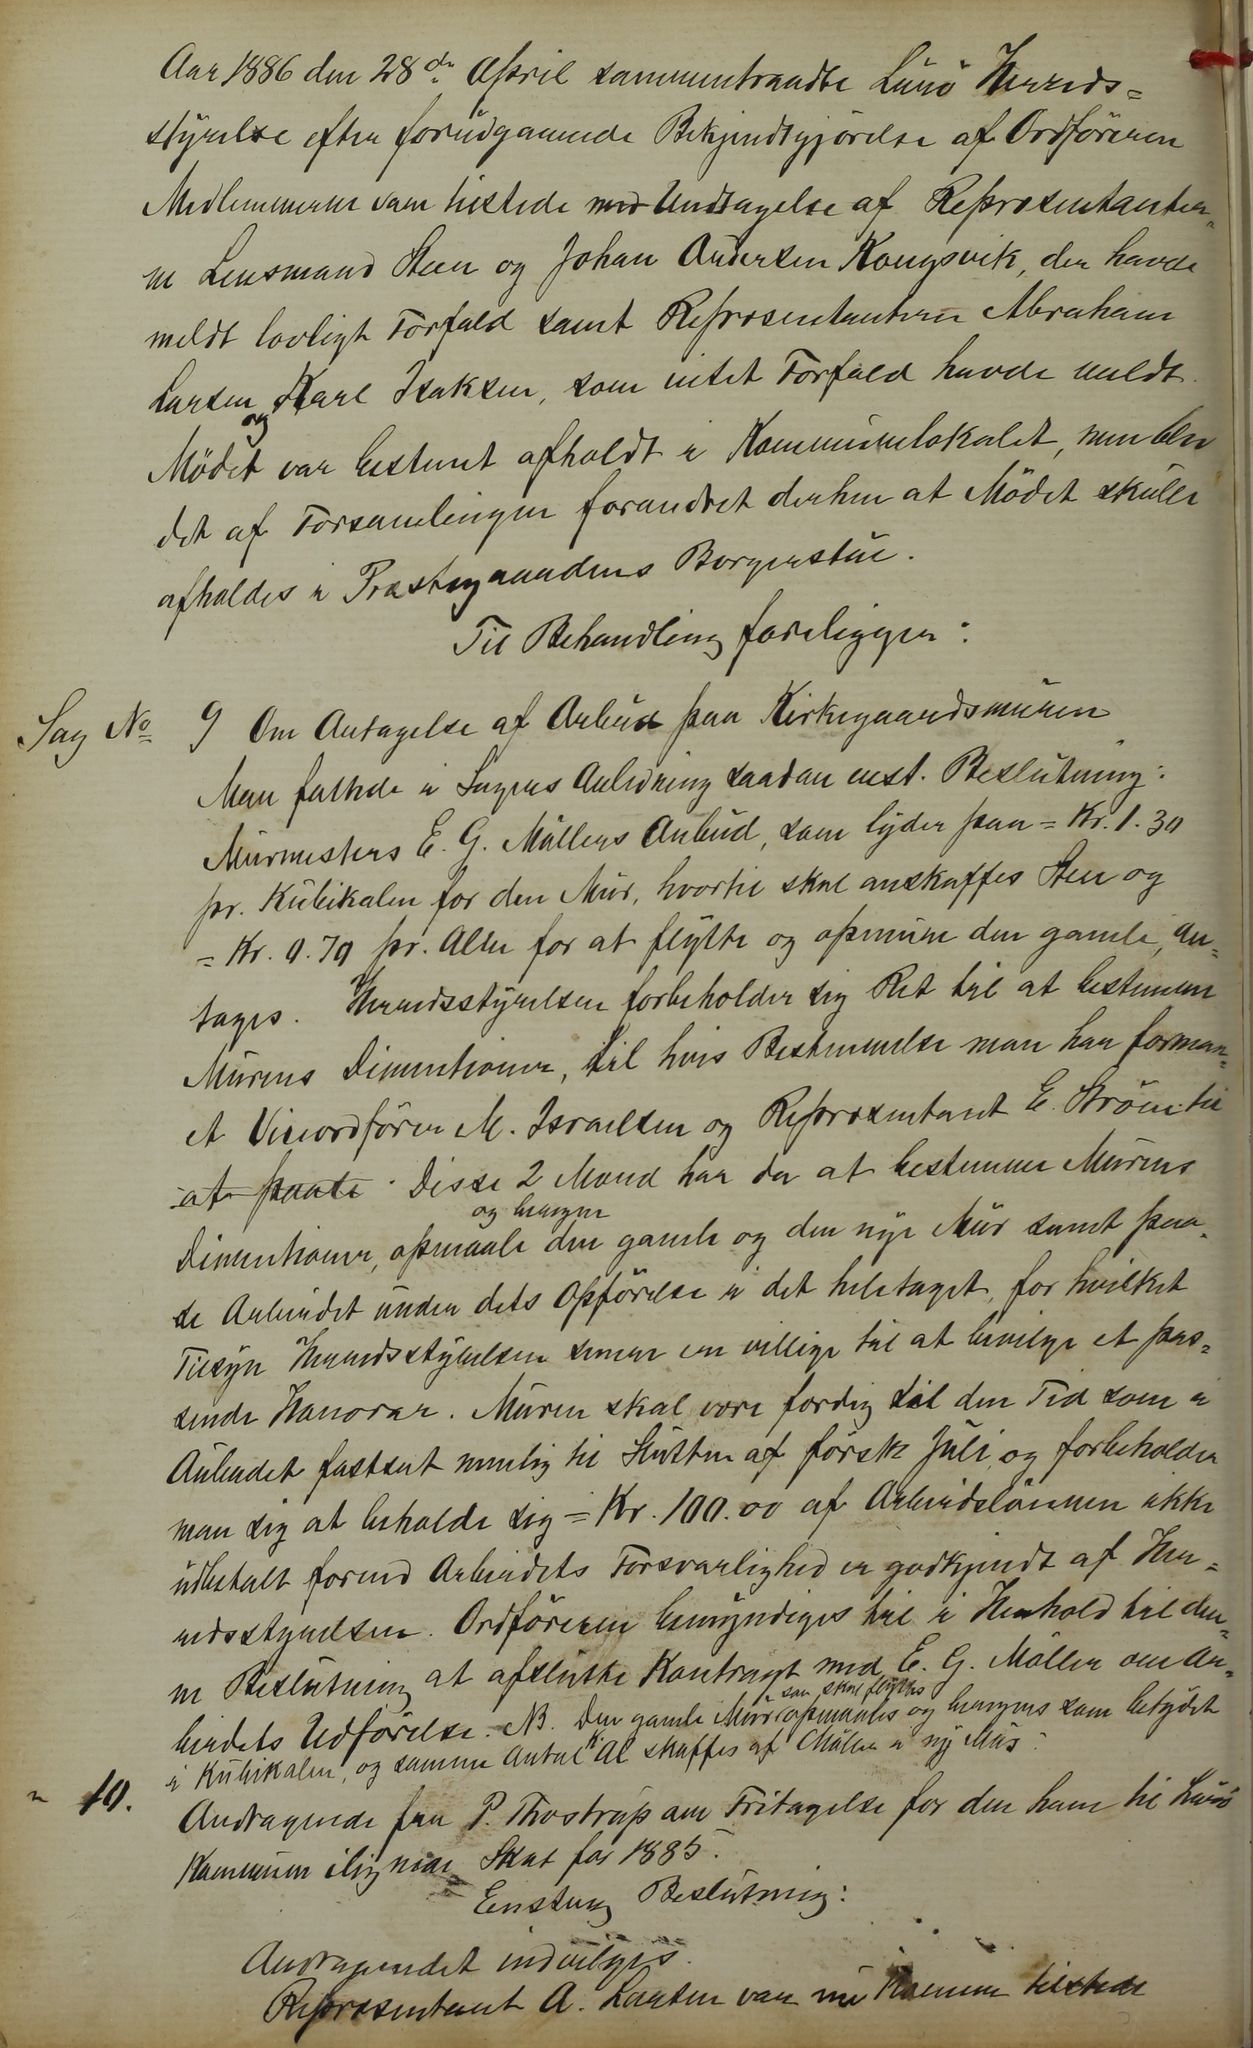 Aar 1886 den 28de April sammentraadte Lurö Herreds=
styrelse efter forudgaaende Bekjendtgjörelse af Ordföreren
Medlemmerne vare tilstede med Undtagelse af Repræsentanter=
ne Lensmand Steen og Johan Andersen Kongsvik, der havde
meldt lovligt Forfald samt Repræsentanterne Abraham
Larsen og Karl Isaksen, som intet Forfald havde meldt.
Mödet var bestemt afholdt i Kommunelokalet, men blev
det af Forsamlingen forandret derhen at Mödet skulle
afholdes i Præstegaardens Borgerstue.
Til Behandling foreligger:
Sag No 9 Om Antagelse af Anbud paa Kirkegaardsmuren
Man fattede i Sagens Anledning saadan enst. Beslutning:
Murmesters E. G. Möllers Anbud, som lyder paa = Kr. 1.30
pr. Kubikalen for den Mur, hvortil skal anskaffes Sten og
= Kr. 0.70 pr. Alen for at flytte og opmure den gamle, an=
tages. Herredsstyrelsen forbeholder sig Ret til at bestemme
Murens Dimentioner, til hvis Bestemmelse man har forman=
et Viceordförer M. Israelsen og Repræsentant E. Ström til
at paase. Disse 2 Mænd har da at bestemme Murens
Dimentioner, opmaale og beregne den gamle og den nye Mur samt paa=
se Arbeidet under dets Opförelse i det heletaget, for hvilket
Tilsyn Herredsstyrelsen senere er villige til at bevilge et pas=
sende Honorar. Muren skal være færdig til den Tid som i
Anbudet fastsat nemlig til Slutten af förstk Juli, og forbeholder
man sig at beholde sig = Kr. 100.00 af Arbeidslönnen ikke
udbetalt forend Arbeidets Forsvarlighed er godkjendt af Her=
redsstyrelsen. Ordföreren bemyndiges til i Henhold til den=
ne Beslutning at afslutte Kontragt med E. G. Möller om Ar=
beidets Udförelse. NB. Den gamle Mur som skal flyttes opmaales og beregnes som betydet
i Kubikalen, og samme Antal Al skaffes af Möller i ny Mur.
" 10. Andragende fra P. Thostrup om Fritagelse for den ham til Lurö
Kommune ilignede Skat for 1885.
Enstemg Beslutning:
Andragendet indvilges.
Repræsentant A. Larsen var nu kommen tilstede